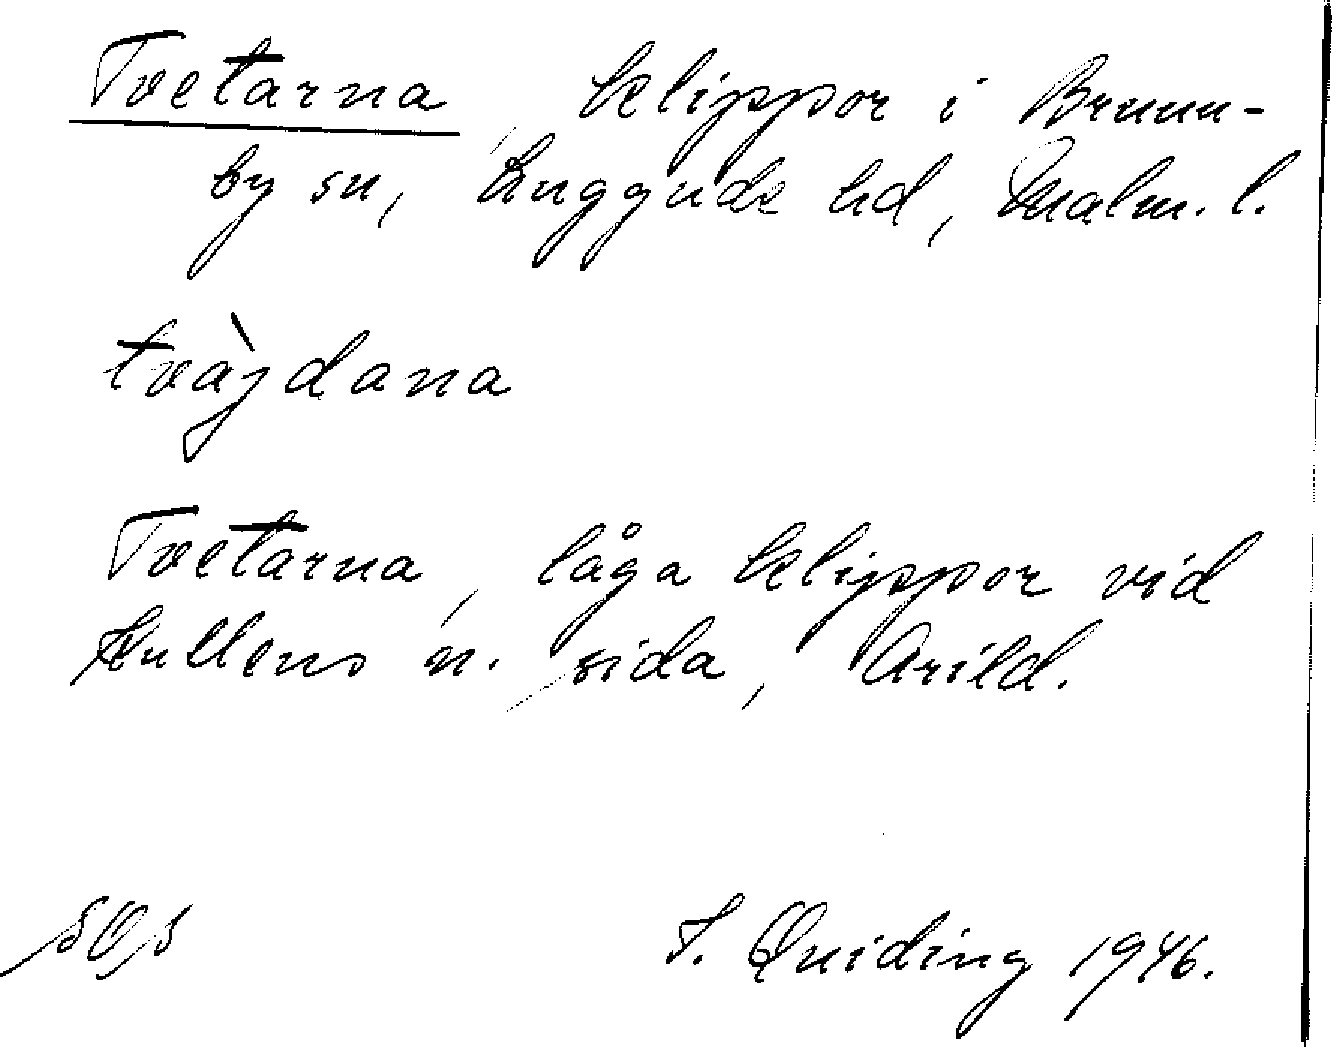 Tvetarna, klippor i Brunn-
by sn, Luggude hd, Malm. l.
tvàjdana
Tvetarna, låga klippor vid
Kullens n. sida, Arild.
SOS
S. Quiding 1946.